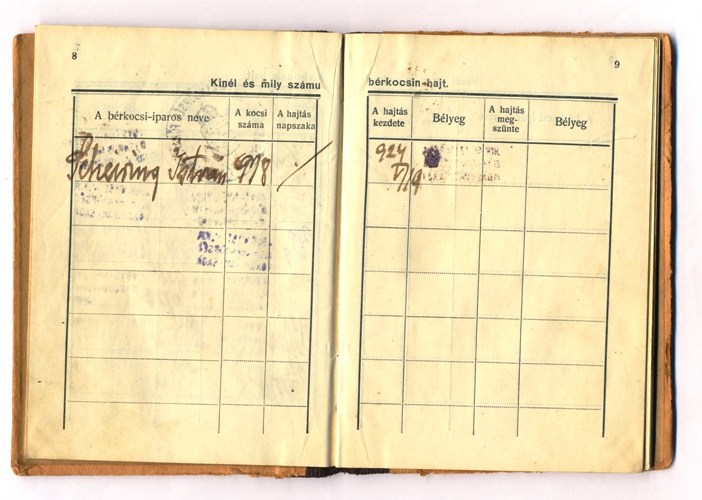 8
Kinél és mily számu
A bérkocsi-iparos neve
A kocsi
száma
A hajtás
napszaka
Scheiring István 918
9
bérkocsin hajt.
A hajtás
kezdete
Bélyeg
A hajtás
meg-
szünte
Bélyeg
924
V/19